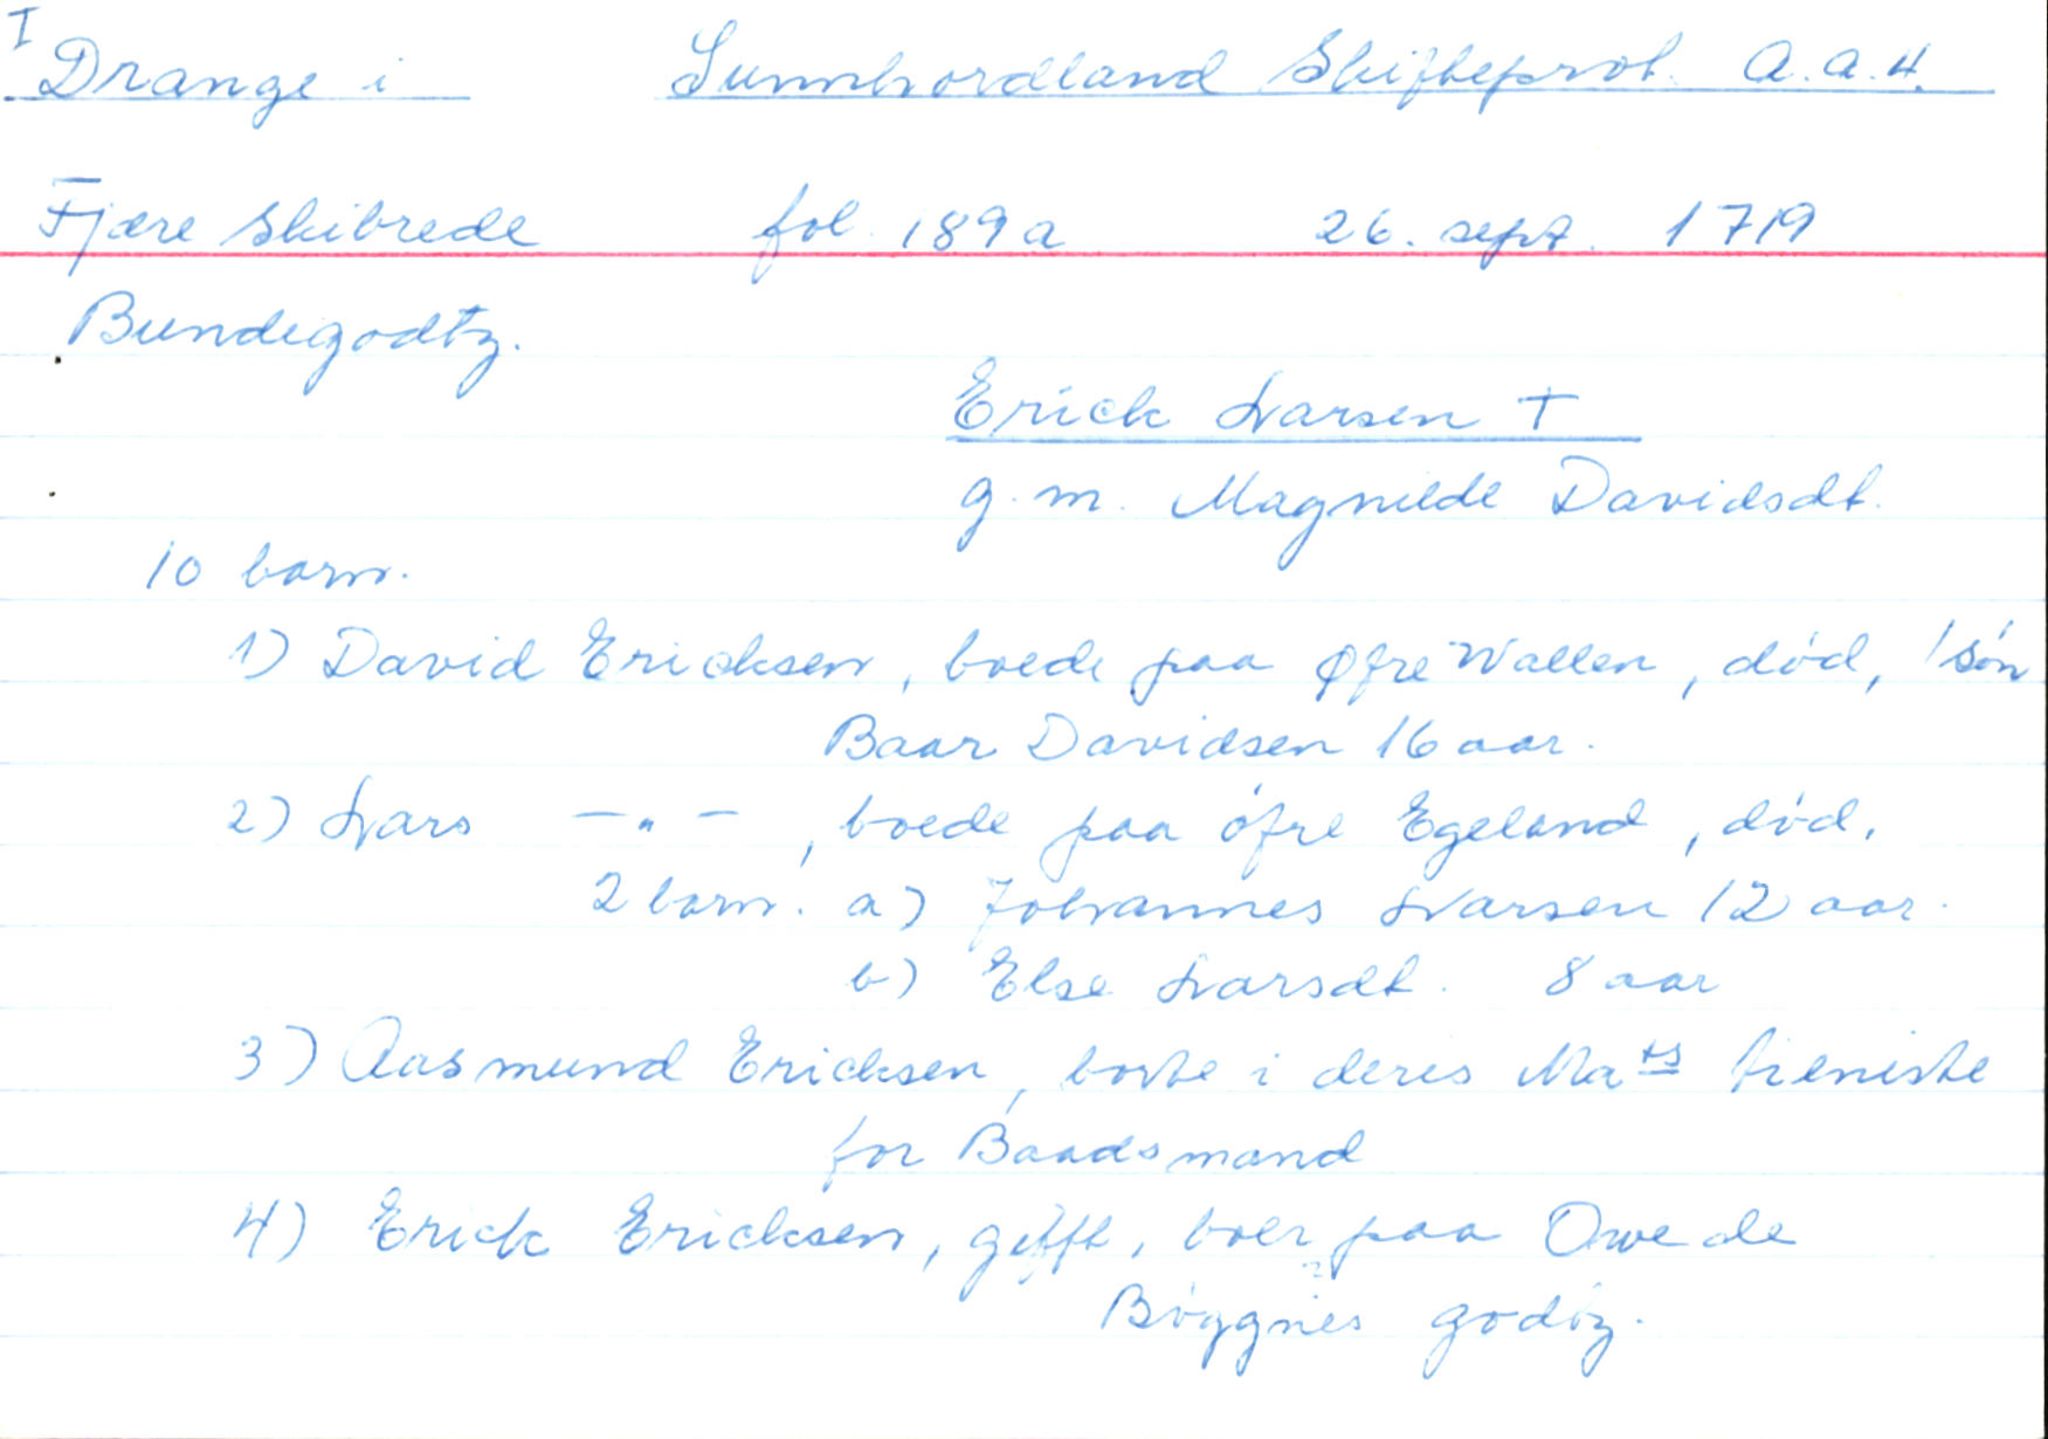 I
Drange i Sunnhordland Skifteprot. A.a.4.
Fjære Skibrede fol. 189a 26. sept. 1719
Bundegodtz.
Erick Larsen †
g.m. Magnilde Davidsdt.
10 barn.
1) David Ericksen, boede paa Øfre Wallen, død, 1 søn
Baar Davidsen 16 aar.
2) Lars —"—, boede paa øfre Egeland, død,
2 barn. a) Johannes Larsen 12 aar.
b) Else Larsdt. 8 aar
3) Aasmund Ericksen, borte i deris Mats tieniste
for Baadsmand
4) Erick Ericksen, gifft, boer paa Owede
?
Bøggnes godtz.